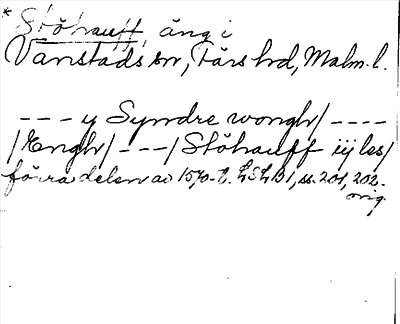 * Stöhauff, äng i
Vanstads sn, Färs hrd, Malm. l.
--- y Syndre wongh/ ----
/Engh/ ---/ Stöhauff iij les/
förra delen av 1570-t. LSLB1, ss. 201, 202.
orig.